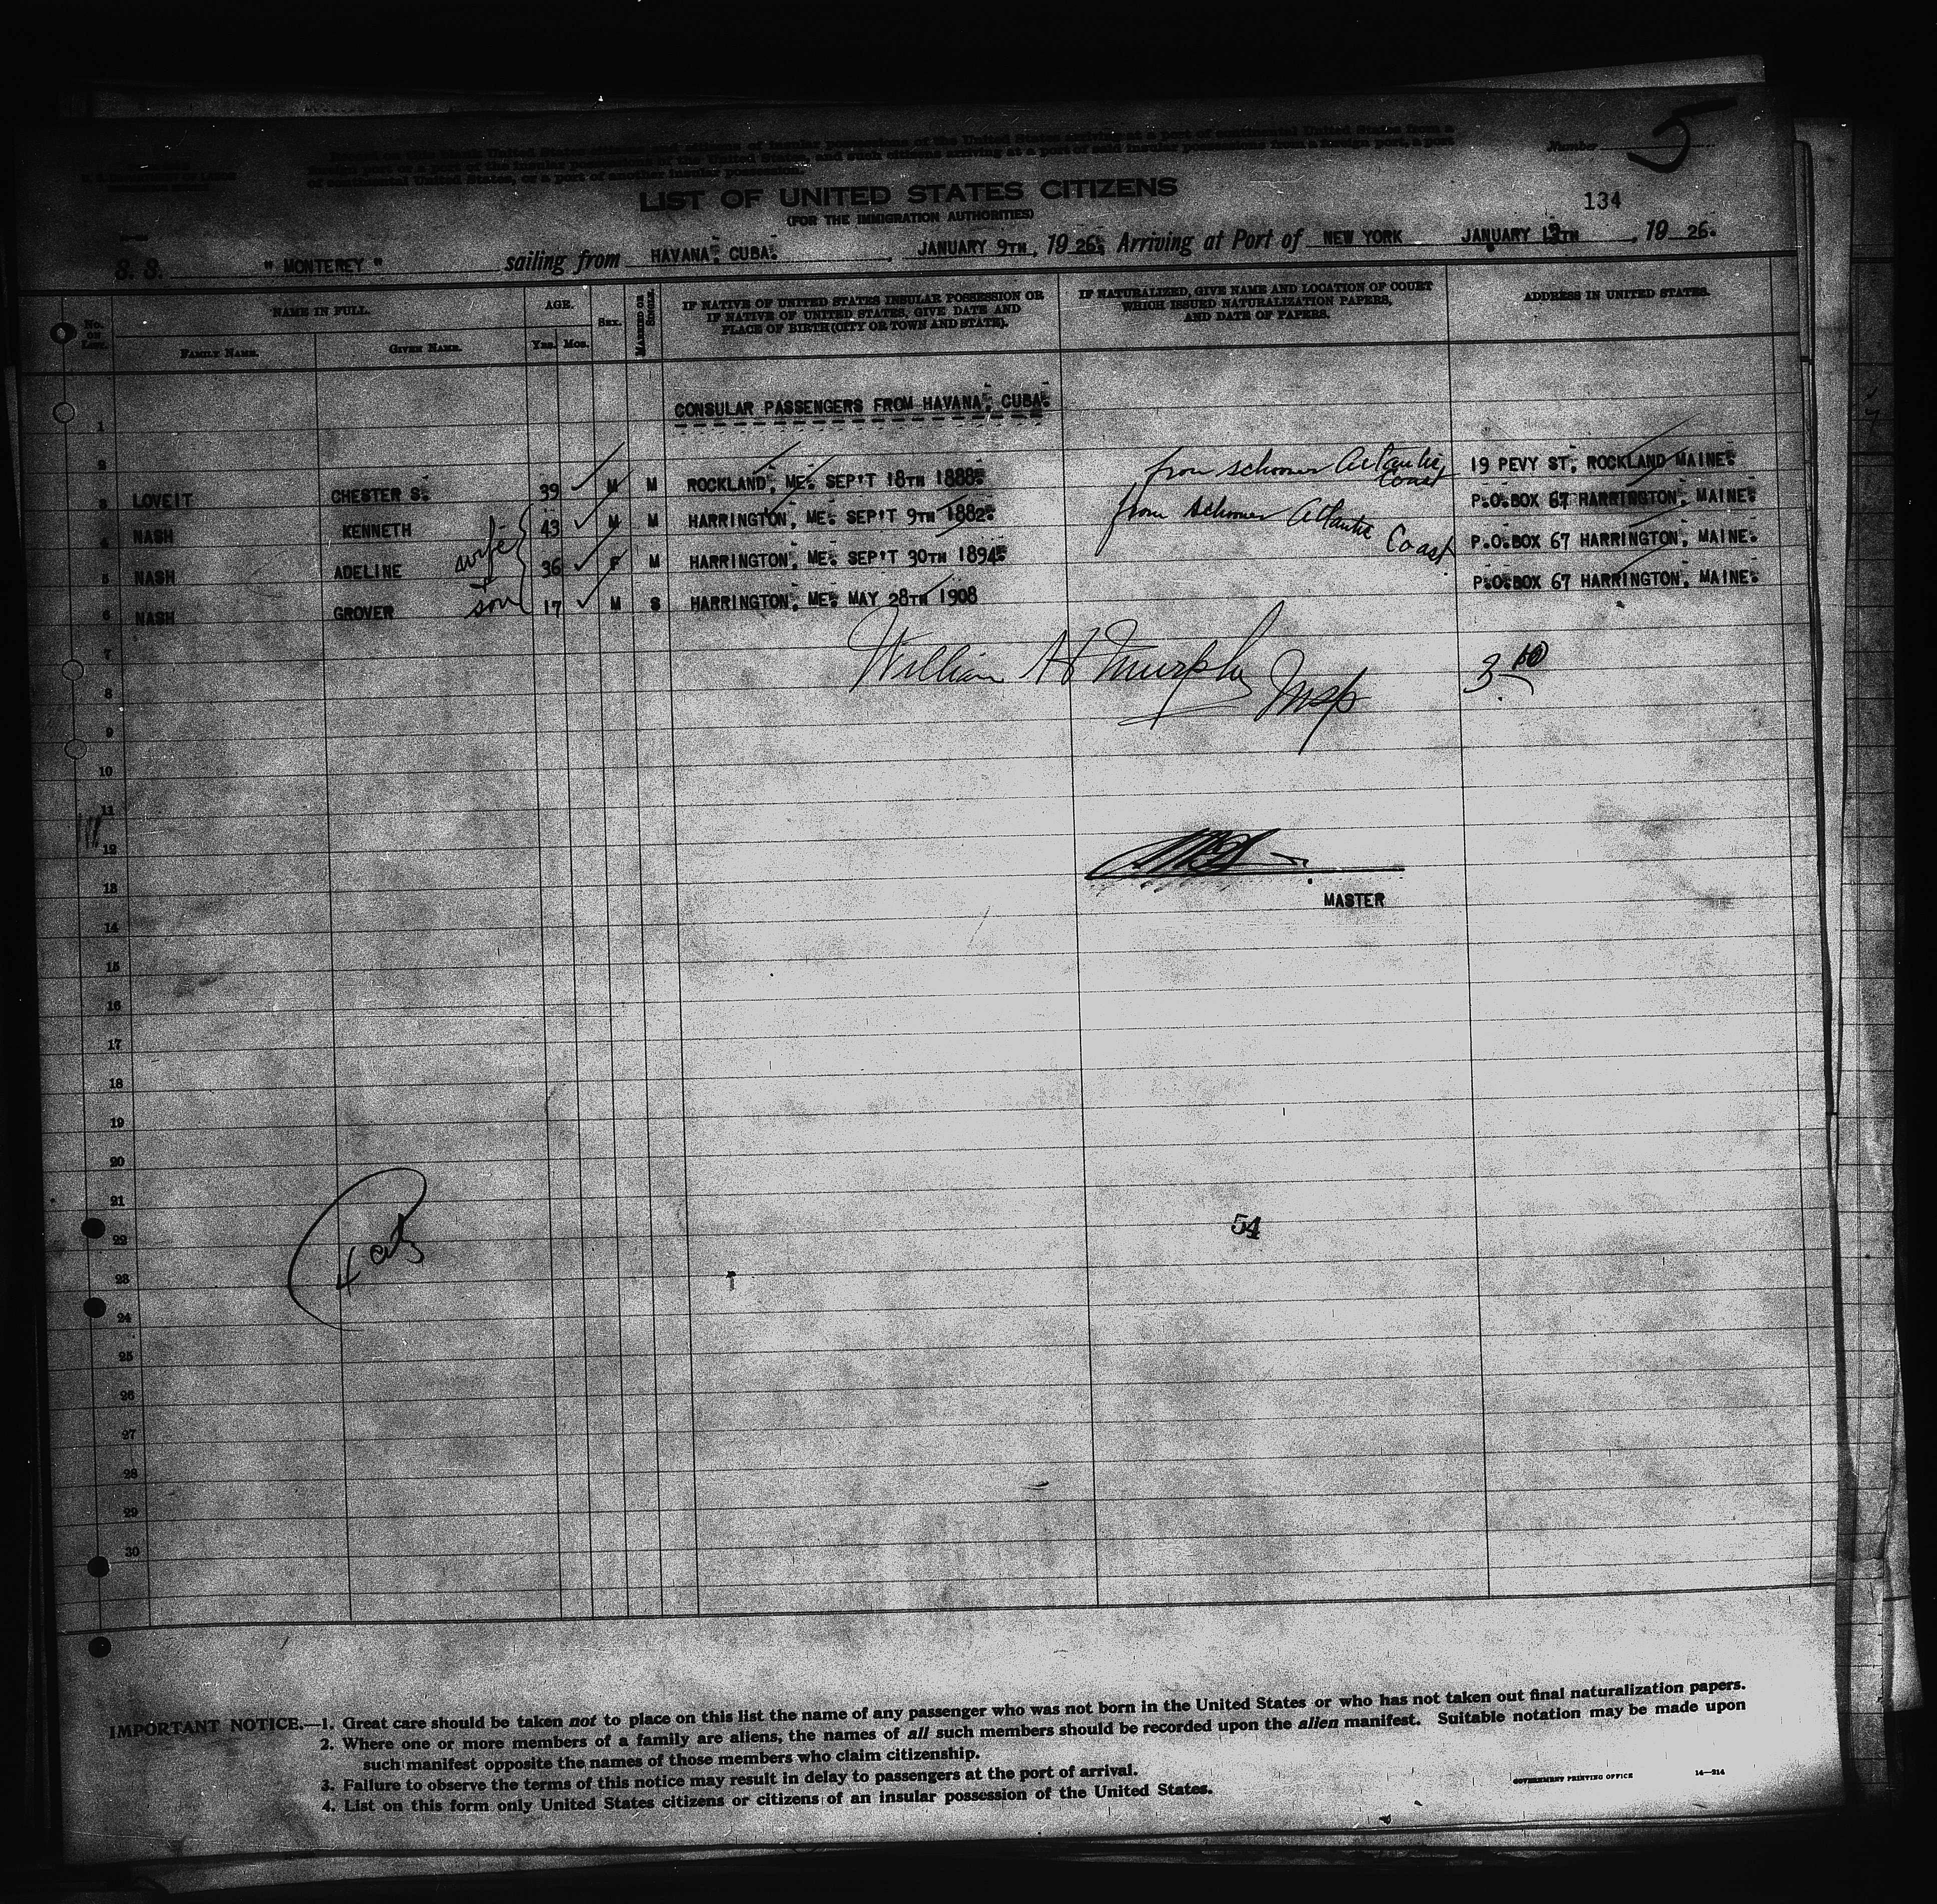 Number 5
foreign port or a port of the insular possessions of the United States, and such citizens arriving at a port of said insular possessions from a foreign port, a port
of continental United States, or a port of another insular possession.
LIST OF UNITED STATES CITIZENS
(FOR THE IMMIGRATION AUTHORITIES)
134
S. S. "MONTEREY" sailing from HAVANA, CUBA. JANUARY 9TH, 1926. Arriving at Port of NEW YORK JANUARY TH, 1926.
No. on List.
NAME IN FULL. AGE. SEX. MARRIED OR SINGLE. IF NATIVE OF UNITED STATES INSULAR POSSESSION OR IF NATIVE OF UNITED STATES, GIVE DATE AND PLACE OF BIRTH (CITY OR TOWN AND STATE). IF NATURALIZED, GIVE NAME AND LOCATION OF COURT WHICH ISSUED NATURALIZATION PAPERS, AND DATE OF PAPERS. ADDRESS IN UNITED STATES.
FAMILY NAME. GIVEN NAME. YRS. MOS.
1 CONSULAR PASSENGERS FROM HAVANA, CUBA.
2
3 LOVEIT CHESTER S. 39 M M ROCKLAND, ME. SEP'T 18TH 1888. from schooner Atlantic Coast 19 PEVY ST, ROCKLAND MAINE.
4 NASH KENNETH 43 M M HARRINGTON, ME. SEP'T 9TH 1882. from schooner Atlantic Coast P.O.BOX 67 HARRINGTON, MAINE.
5 NASH ADELINE wife 36 F M HARRINGTON, ME. SEP'T 30TH 1894. P.O.BOX 67 HARRINGTON, MAINE.
6 NASH GROVER + son 17 M S HARRINGTON, ME. MAY 28TH 1908 P.O.BOX 67 HARRINGTON, MAINE.
7
8 William H Murphy Insp
9
10
11
12
13 MASTER
14
15
16
17
18
19
20
21
22 54
23
24
25
26
27
28
29
30
IMPORTANT NOTICE.—1. Great care should be taken not to place on this list the name of any passenger who was not born in the United States or who has not taken out final naturalization papers.
2. Where one or more members of a family are aliens, the names of all such members should be recorded upon the alien manifest. Suitable notation may be made upon
such manifest opposite the names of those members who claim citizenship.
3. Failure to observe the terms of this notice may result in delay to passengers at the port of arrival.
4. List on this form only United States citizens or citizens of an insular possession of the United States.
GOVERNMENT PRINTING OFFICE 14—214